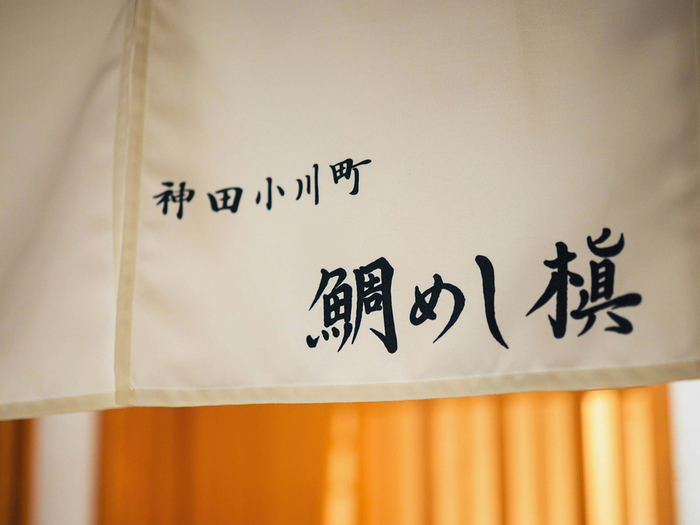 神田小川町
鯛めし槇